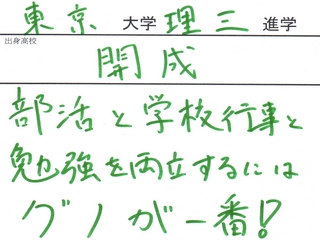 東京大学理三進学
出身高校
開成
部活と学校行事と
勉強を両立するには
グノが一番!?